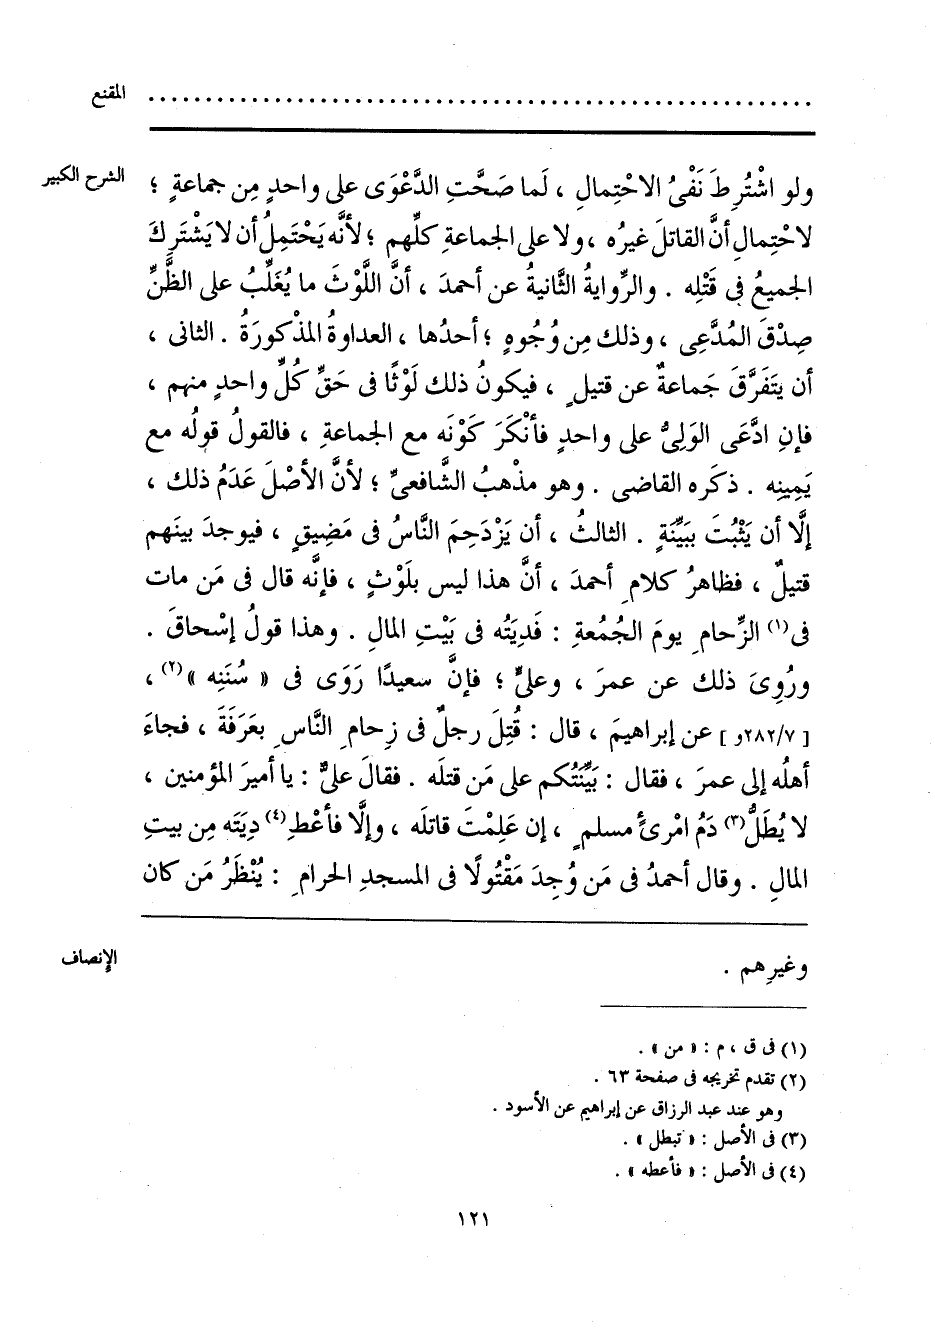 المقنع ........................................................
الشرح الكبير
ولو اشْتُرِطَ نَفْىُ الاحْتِمالِ ، لَما صَحَّتِ الدَّعْوَى على واحدٍ مِن جماعةٍ ؛
لاحْتِمالِ أنَّ القاتلَ غيرُه ، ولا على الجماعةِ كلِّهم ؛ لأنَّه يَحْتَمِلُ أن لا يَشْتَرِكَ
الجميعُ فى قَتْلِه . والرِّوايةُ الثَّانيةُ عن أحمدَ ، أنَّ اللَّوْثَ ما يُغَلِّبُ على الظَّنِّ
صِدْقَ المُدَّعِى ، وذلك مِن وُجُوهٍ ؛ أحدُها ، العداوةُ المذْكورَةُ . الثانى ،
أن يتَفَرَّقَ جَماعةٌ عن قتيلٍ ، فيكونُ ذلك لَوْثًا فى حَقِّ كُلِّ واحدٍ منهم ،
فإنِ ادَّعَى الوَلِىُّ على واحدٍ فأنْكَرَ كَوْنَه مع الجماعةِ ، فالقولُ قولُه مع
يَمِينِه . ذكَره القاضى . وهو مذْهبُ الشَّافعىِّ ؛ لأنَّ الأصْلَ عَدَمُ ذلك ،
إلَّا أن يَثْبُتَ ببَيِّنَةٍ . الثالثُ ، أن يَزْدَحِمَ النَّاسُ فى مَضِيقٍ ، فيوجدَ بينَهم
قتيلٌ ، فظاهرُ كلامِ أحمدَ ، أنَّ هذا ليس بلَوْثٍ ، فإنَّه قال فى مَن مات
فى(١) الزِّحامِ يومَ الجُمُعةِ : فَدِيَتُه فى بَيْتِ المالِ . وهذا قولُ إسْحاقَ .
ورُوِىَ ذلك عن عمرَ ، وعلىٍّ ؛ فإنَّ سعيدًا رَوَى فى « سُنَنِه »(٢) ،
[ ٢٨٢/٧و ] عن إبراهيمَ ، قال : قُتِلَ رجلٌ فى زِحامِ النَّاسِ بعَرَفَةَ ، فجاءَ
أهلُه إلى عمرَ ، فقال : بَيِّنَتُكم على مَن قتلَه . فقالَ علىٌّ : يا أميرَ المؤمنين ،
لا يُطَلُّ(٣) دَمُ امْرِئٍ مسلمٍ ، إن عَلِمْتَ قاتلَه ، وإلَّا فأعْطِ(٤) دِيَتَه مِن بيتِ
المالِ . وقال أحمدُ فى مَن وُجِدَ مَقْتُولًا فى المسجدِ الحرامِ : يُنْظَرُ مَن كان
الإنصاف
وغيرِهم .
(١) فى ق ، م : « من » .
(٢) تقدم تخريجه فى صفحة ٦٣ .
وهو عند عبد الرزاق عن إبراهيم عن الأسود .
(٣) فى الأصل : « تبطل » .
(٤) فى الأصل : « فأعطه » .
١٢١